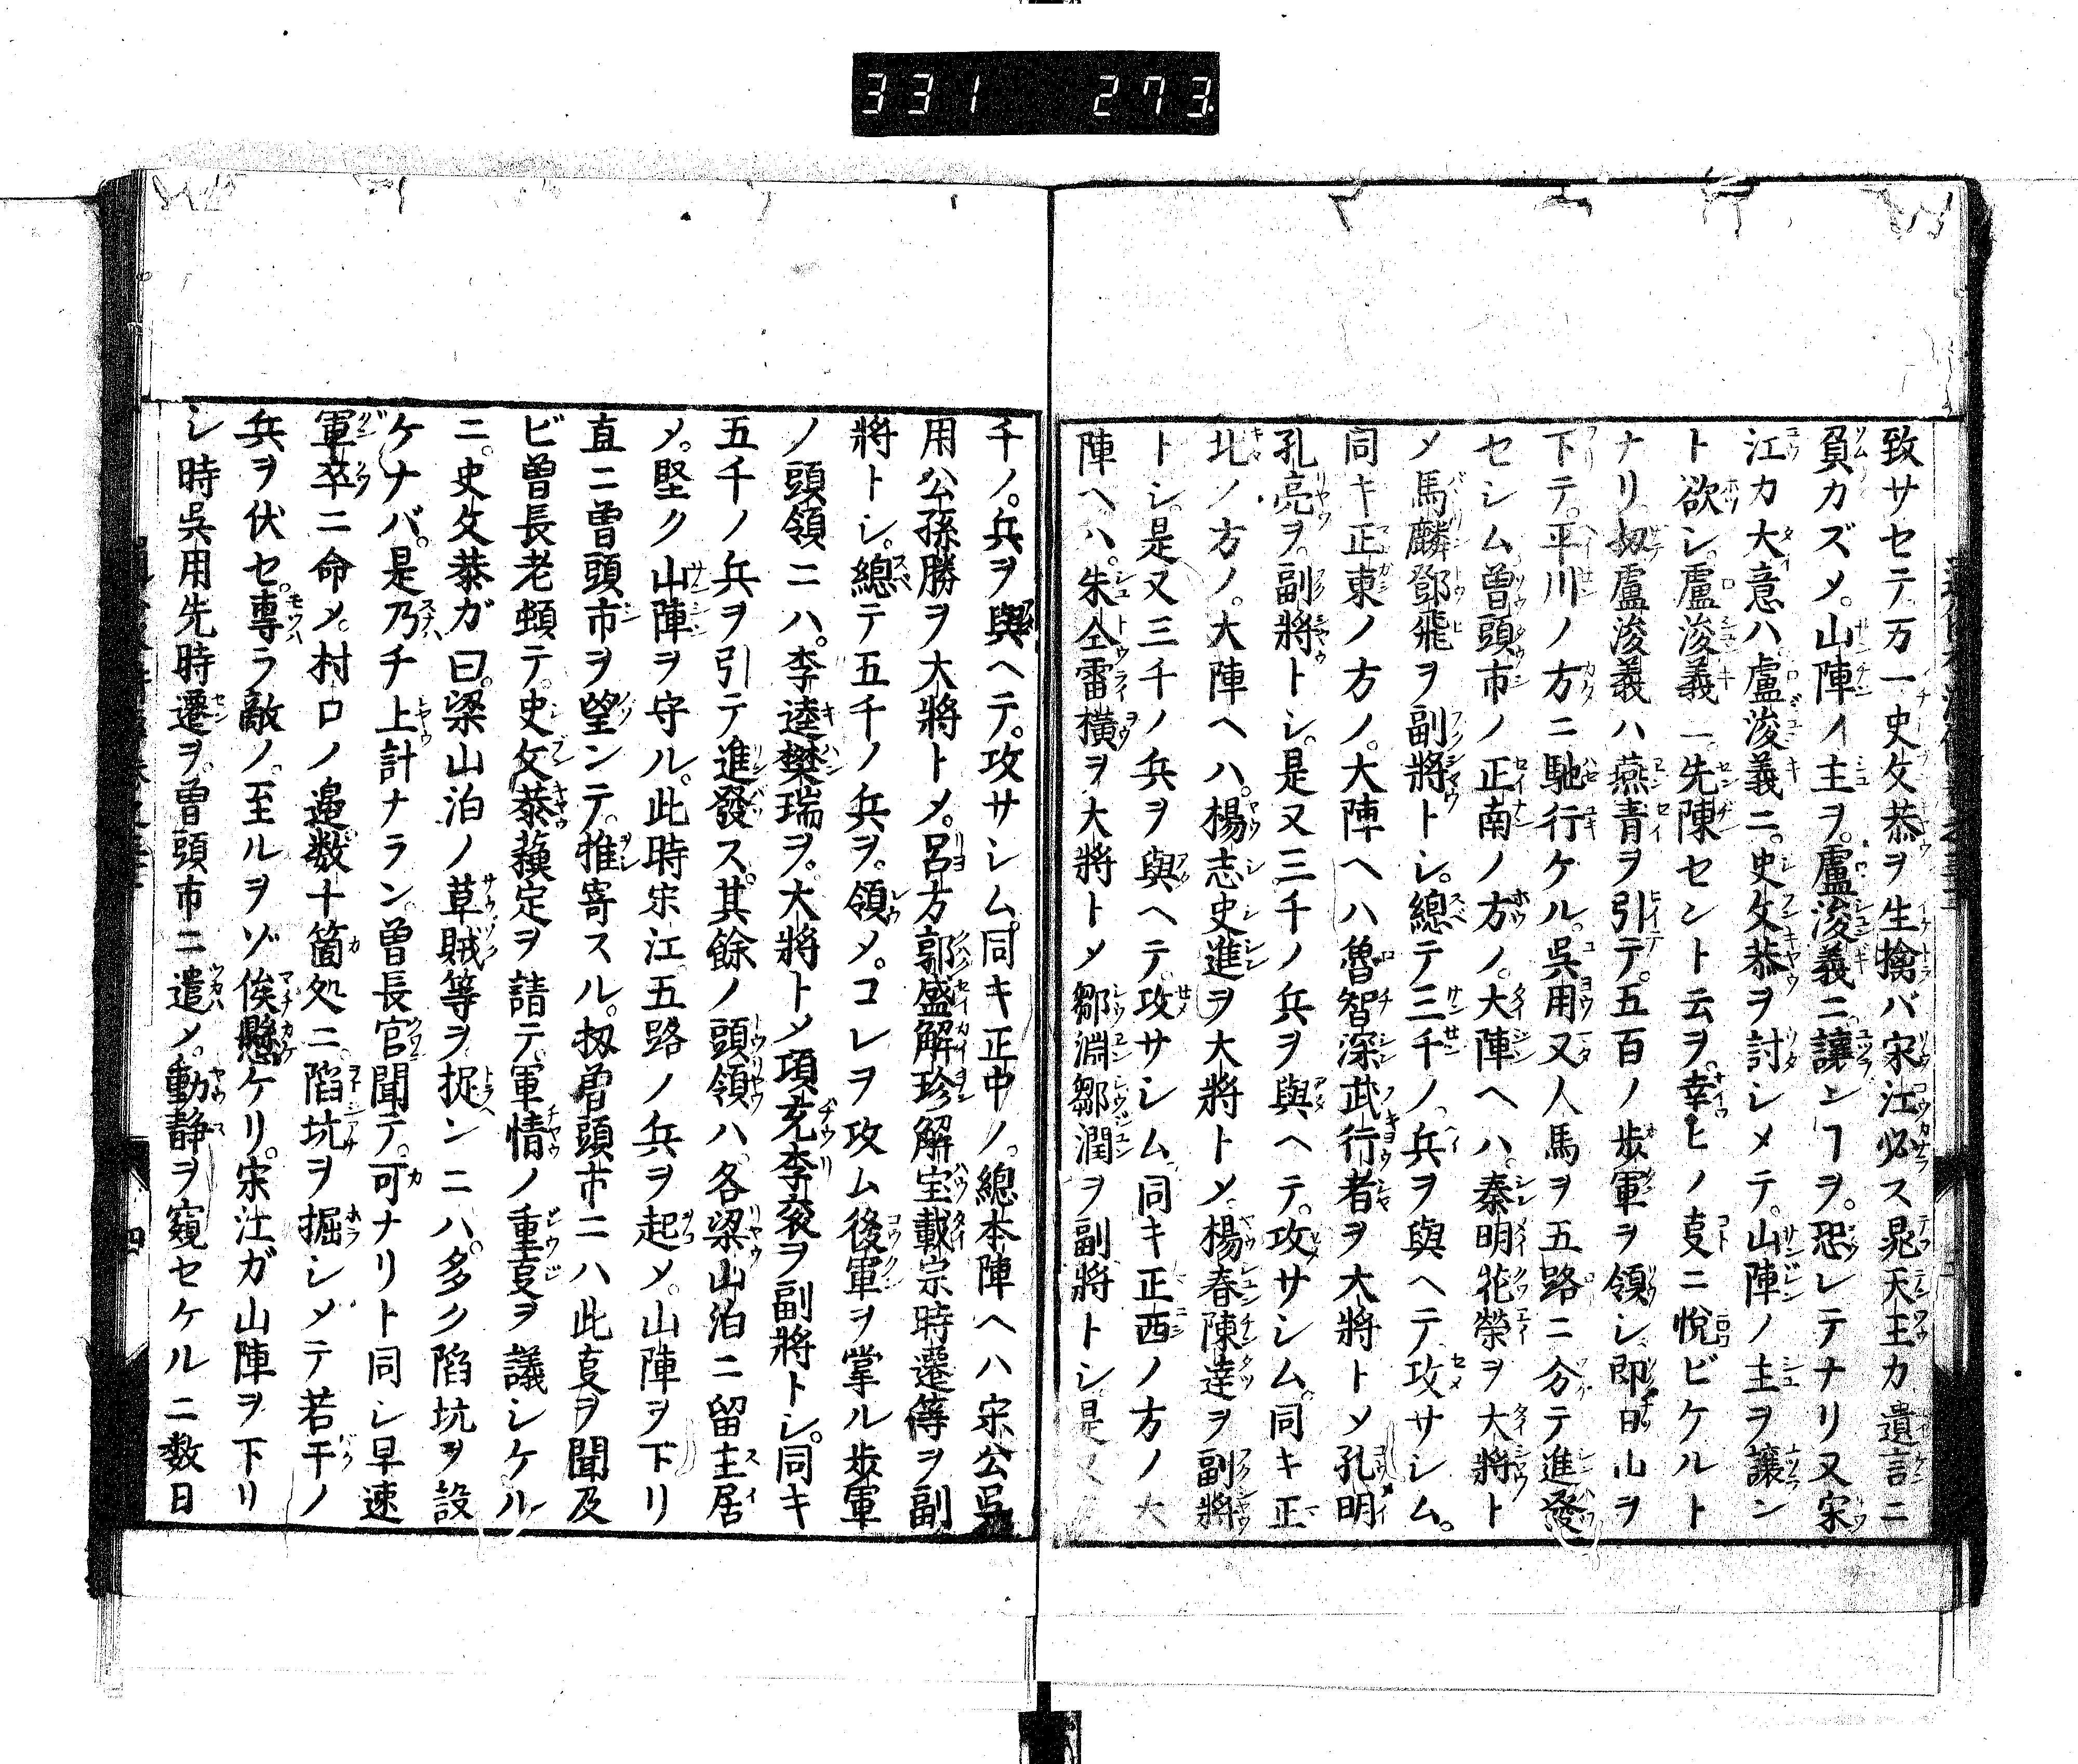 331 273
致サセテ万一史文恭ヲ生擒バ宋江必ス晁天王カ遺言ニ
負カズメ。山陣ノ主ヲ。盧浚義ニ讓ンヿヲ。恐レテナリ又宋
江カ大意ハ。盧浚義ニ。史文恭ヲ討シメテ。山陣ノ主ヲ讓ン
ト欲シ。盧浚義一先陳セント云ヲ。幸ヒノ㕝ニ悅ビケルト
ナリ。扨盧浚義ハ燕青ヲ引テ。五百ノ歩軍ヲ領シ即日山ヲ
下テ。平川ノ方ニ馳行ケル。吳用又人馬ヲ五路ニ分テ進發
セシム曽頭市ノ正南ノ方ノ。大陣ヘハ。秦明花榮ヲ大將ト
メ馬麟鄧飛ヲ副將トシ。總テ三千ノ兵ヲ與ヘテ攻サシム。
同キ正東ノ方ノ。大陣ヘハ魯智深武行者ヲ大將トメ孔明
孔亮ヲ。副將トシ。是又三千ノ兵ヲ與ヘテ。攻サシム。同キ正
北ノ方ノ。大陣ヘハ。楊志史進ヲ大將トメ。楊春陳達ヲ副將
トシ。是又三千ノ兵ヲ與ヘテ。攻サシム。同キ正西ノ方ノ大
陣ヘハ。朱仝雷橫ヲ大將トメ鄒淵鄒潤ヲ副將トシ是又
千ノ。兵ヲ與ヘテ。攻サシム。同キ正中ノ。總本陣ヘハ宋公吳
用公孫勝ヲ大將トメ。呂方郭盛解珍解宝載宗時遷等ヲ副
將トシ。總テ五千ノ兵ヲ。領メ。コレヲ攻ム後軍ヲ掌ル歩軍
ノ頭領ニハ。李逵樊瑞ヲ。大將トメ項充李袞ヲ副將トシ。同キ
五千ノ兵ヲ引テ進發ス。其餘ノ頭領ハ。各梁山泊ニ留主居
メ。堅ク山陣ヲ守ル。此時宋江五路ノ兵ヲ起メ。山陣ヲ下リ
直ニ曽頭市ヲ望ンテ。推寄スル。扨曽頭市ニハ此㕝ヲ聞及
ビ曽長老頓テ。史文恭蘓定ヲ請テ。軍情ノ重㕝ヲ議シケル
ニ。史文恭ガ曰。梁山泊ノ草賊等ヲ捉ンニハ。多ク陷坑ヲ設
ケナバ。是乃チ上計ナラン。曽長官聞テ。可ナリト同シ早速
軍卒ニ命メ。村口ノ邉数十箇処ニ。陷坑ヲ掘シメテ若干ノ
兵ヲ伏セ。專ラ敵ノ。至ルヲゾ俟懸ケリ。宋江ガ山陣ヲ下リ
シ時吳用先時遷ヲ。曽頭市ニ遣メ。動静ヲ窺セケルニ数日
四